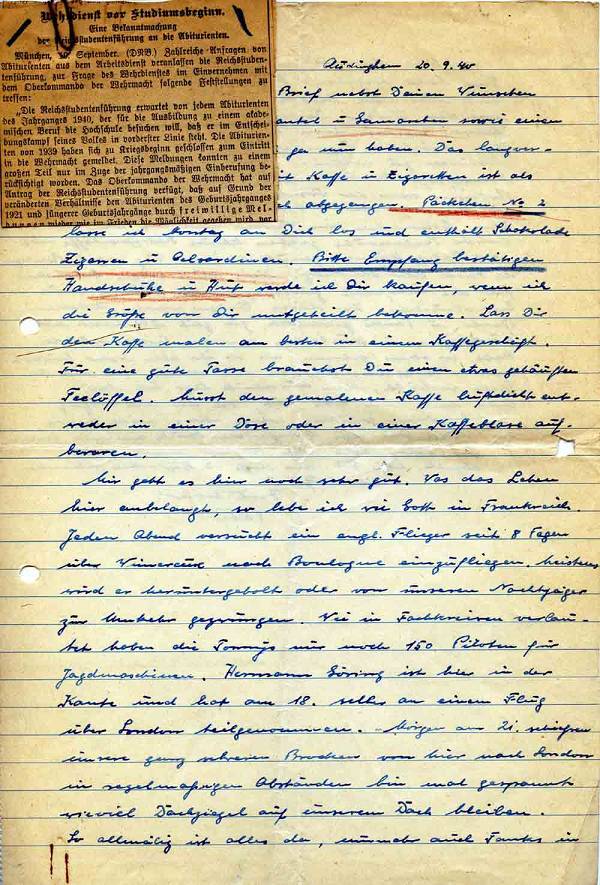 Wehrdienst vor Studiumsbeginn.
Eine Bekanntmachung
der Reichsstudentenführung an die Abiturienten.
München, 19. September. (DNB.) Zahlreiche Anfragen von
Abiturienten aus dem Arbeitsdienst veranlassen die Reichsstuden-
tenführung, zur Frage des Wehrdienstes im Einvernehmen mit
dem Oberkommando der Wehrmacht folgende Feststellungen zu
treffen:
„Die Reichsstudentenführung erwartet von jedem Abiturienten
des Jahrganges 1940, der für die Ausbildung zu einem akade-
mischen Beruf die Hochschule besuchen will, daß er im Entschei-
dungskampf seines Volkes in vorderster Linie steht. Die Abiturien-
ten von 1939 haben sich zu Kriegsbeginn geschlossen zum Eintritt
in die Wehrmacht gemeldet. Diese Meldungen konnten zu einem
großen Teil nur im Zuge der jahrgangsmäßigen Einberufung be-
rücksichtigt werden. Das Oberkommando der Wehrmacht hat auf
Antrag der Reichsstudentenführung verfügt, daß auf Grund der
veränderten Verhältnisse den Abiturienten des Geburtsjahrganges
1921 und jüngerer Geburtsjahrgänge durch freiwillige Mel-
dungen
Audinghen 20.9.40
Brief nebst Deinen Wünschen
u Gamaschen sowie einen
zu haben. Das
Kaffe u Zigaretten ist als
abgegangen. Päckchen No 2
lasse ich Montag an Dich los und enthält Schokolade
Zigarren u Oelsardinen. Bitte Empfang bestätigen
Handschuhe u Hut werde ich Dir kaufen, wenn ich
die Größe von Dir mitgeteilt bekomme. Lass Dir
den Kaffe malen am besten in einem Kaffegeschäft.
Für eine gute Tasse brauchst Du einen etwas gehäuften
Teelöffel. Musst den gemalenen Kaffe luftdicht ent-
weder in einer Dose oder in einer Kaffeblase auf-
bewaren.
Mir geht es hier noch sehr gut. Was das Leben
hier anbelangt, so lebe ich wie Gott in Frankreich.
Jeden Abend versucht ein engl. Flieger seit 8 Tagen
über Wimereux nach Boulogne einzufliegen. Meistens
wird er heruntergeholt oder von unseren Nachtjäger
zur Umkehr gezwungen. Wie in Fachkreisen verlau-
tet haben die Tommys nur noch 150 Piloten für
Jagdmaschinen. Hermann Göring ist hier in der
Kante und hat am 18. selbst an einem Flug
über London teilgenommen. Morgen am 21. schießen
unsere ganz schweren Brocken von hier nach London
in regelmäsigen Abständen bin mal gespannt
wieviel Dachziegel auf unserem Dach bleiben.
So allmälig ist alles da, nunmehr auch Tanks in